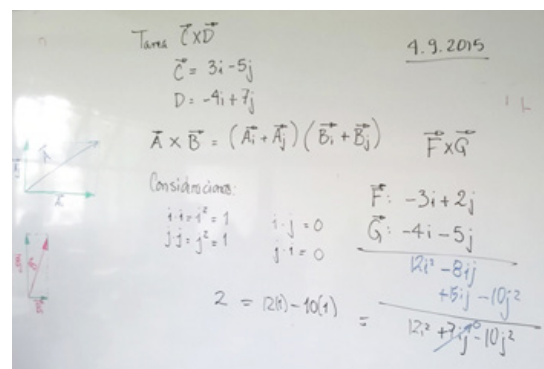 Tarea C⃗XD⃗
4.9.2015
C⃗ = 3i-5j
D = -4i+7j
A⃗ × B⃗ = (A⃗i + A⃗j)(B⃗i + B⃗j)
F⃗XG⃗
Consideraciones:
i·i=i²=1
j·j=j²=1
i·j=0
j·i=0
F⃗: -3i+2j
G⃗: -4i-5j
12i² -8ij
-10j²
2 = 12(1)-10(1) =
12i² +7ij⁰ -10j²